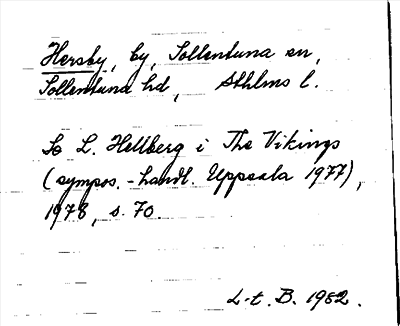 Hersby, by, Sollentuna sn,
Sollentuna hd, Sthlms l.
Se L. Hellberg i The Vikings
(sympos.-handl. Uppsala 1977),
1978, s. 70.
L-t. B. 1982.